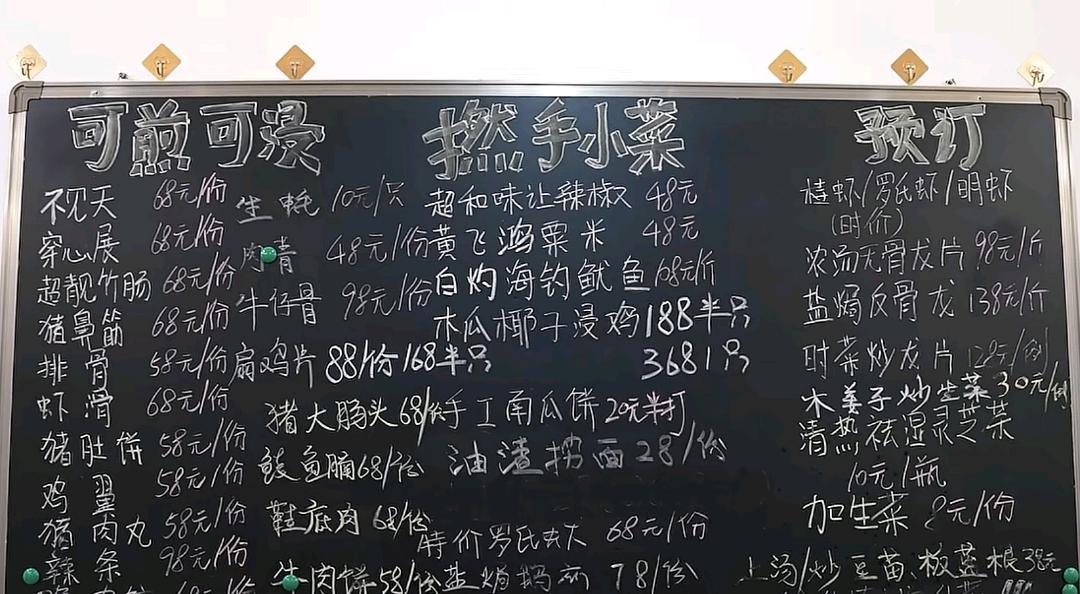 可煎可浸
不见天 68元/份
穿心展 68元/份
超靓竹肠 68元/份
猪鼻筋 68元/份
排骨 58元/份
虾滑 68元/份
猪肚饼 58元/份
鸡翼 58元/份
猪肉丸 58元/份
辣条 98元/份
生蚝 10元/只
肉青 48元/份
牛仔骨 98元/份
扇鸡片 88/份 168半只
猪大肠头 68/份
鲮鱼腩 68/份
鞋底肉 68/份
牛肉饼 58/份
撚手小菜
超和味让辣椒 48元
黄飞鸿粟米 48元
白灼海钓鱿鱼 108元/斤
木瓜椰子浸鸡 188半只
368 1只
手工南瓜饼 20元半打
油渣捞面 28/份
特价罗氏虾 68元/份
盐焗 78/份
预订
罗氏虾/明虾
(时价)
浓汤无骨龙片 98元/斤
盐焗反骨龙 138元/斤
时菜炒龙片 128元/例
木姜子炒生菜 30元/例
清热祛湿灵芝茶
10元1瓶
加生菜 8元/份
上汤/炒豆苗、板蓝根 38元